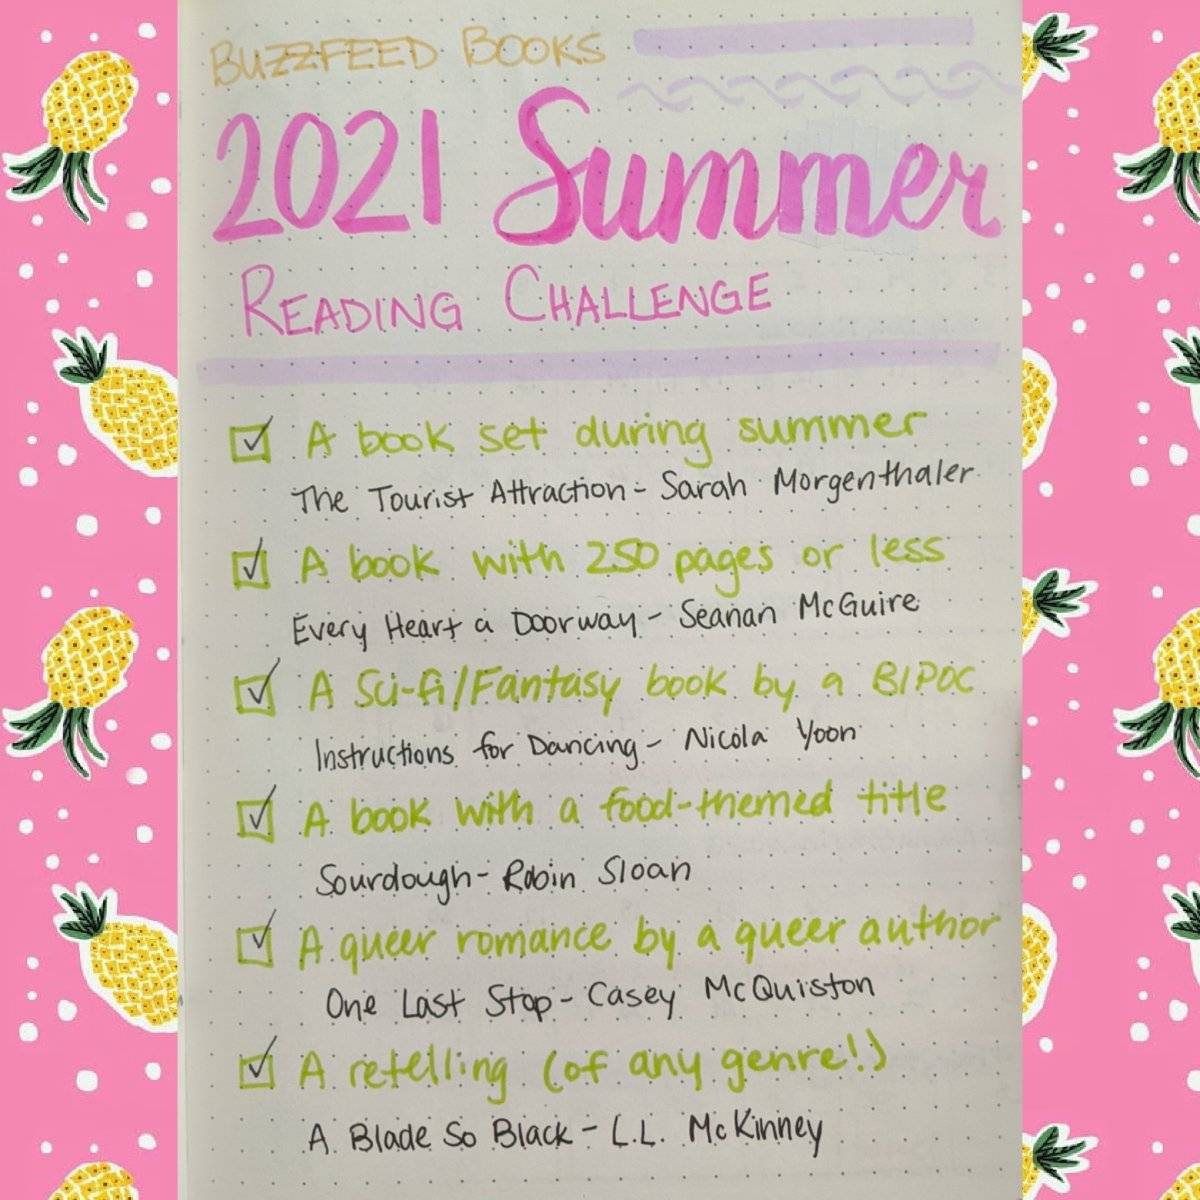 BUZZFEED BOOKS
2021 Summer
READING CHALLENGE
A book set during summer
The Tourist Attraction - Sarah Morgenthaler
A book with 250 pages or less
Every Heart a Doorway - Seanan McGuire
A Sci-fi/Fantasy book by a BIPOC
Instructions for Dancing - Nicola Yoon
A book with a food-themed title
Sourdough - Robin Sloan
A queer romance by a queer author
One Last Stop - Casey McQuiston
A retelling (of any genre!)
A Blade So Black - L.L. McKinney